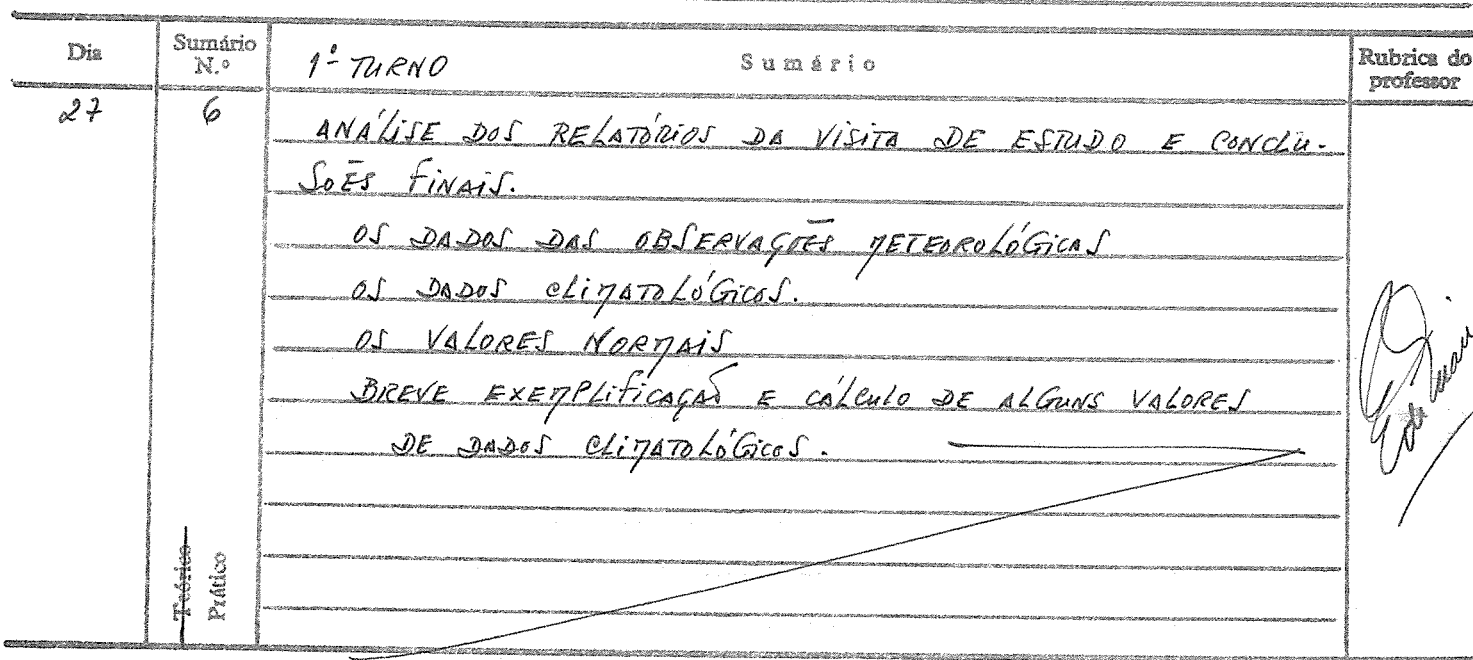 Dia Sumário N.º 1º TURNO Sumário Rubrica do professor
27 6
ANÁLISE DOS RELATÓRIOS DA VISITA DE ESTUDO E CONCLU-
SÕES FINAIS.
OS DADOS DAS OBSERVAÇÕES METEOROLÓGICAS
OS DADOS CLIMATOLÓGICOS.
OS VALORES NORMAIS
BREVE EXEMPLIFICAÇÃO E CÁLCULO DE ALGUNS VALORES
DE DADOS CLIMATOLÓGICOS.
Teórico
Prático